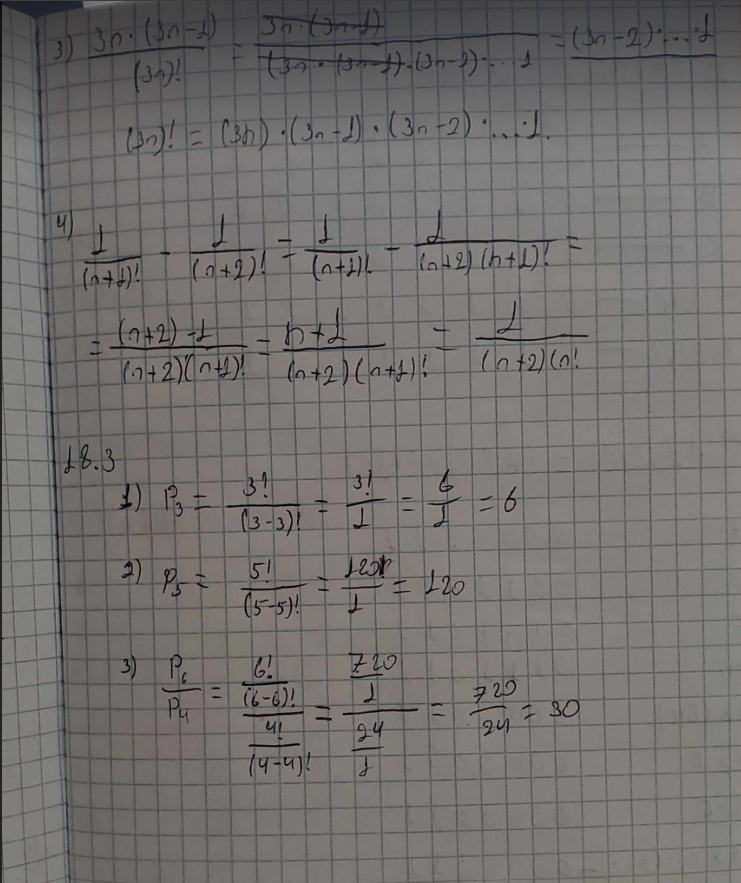 3) 3n·(3n-1)/(3n)! = 3n·(3n-1)/(3n·(3n-1)·(3n-2)·...1 = (3n-2)·...·1
(3n)! = (3n)·(3n-1)·(3n-2)·...·1.
4) 1/(n+1)! - 1/(n+2)! = 1/(n+1)! - 1/(n+2)(n+1)! =
= (n+2)-1/(n+2)(n+1)! = n+1/(n+2)(n+1)! = 1/(n+2)(n!
18.3
1) P₃ = 3!/(3-3)! = 3!/1 = 6/1 = 6
2) P₅ = 5!/(5-5)! = 120/1 = 120
3) P₆/P₄ = 6!/(6-6)!/4!/(4-4)! = 720/1/24/1 = 720/24 = 30